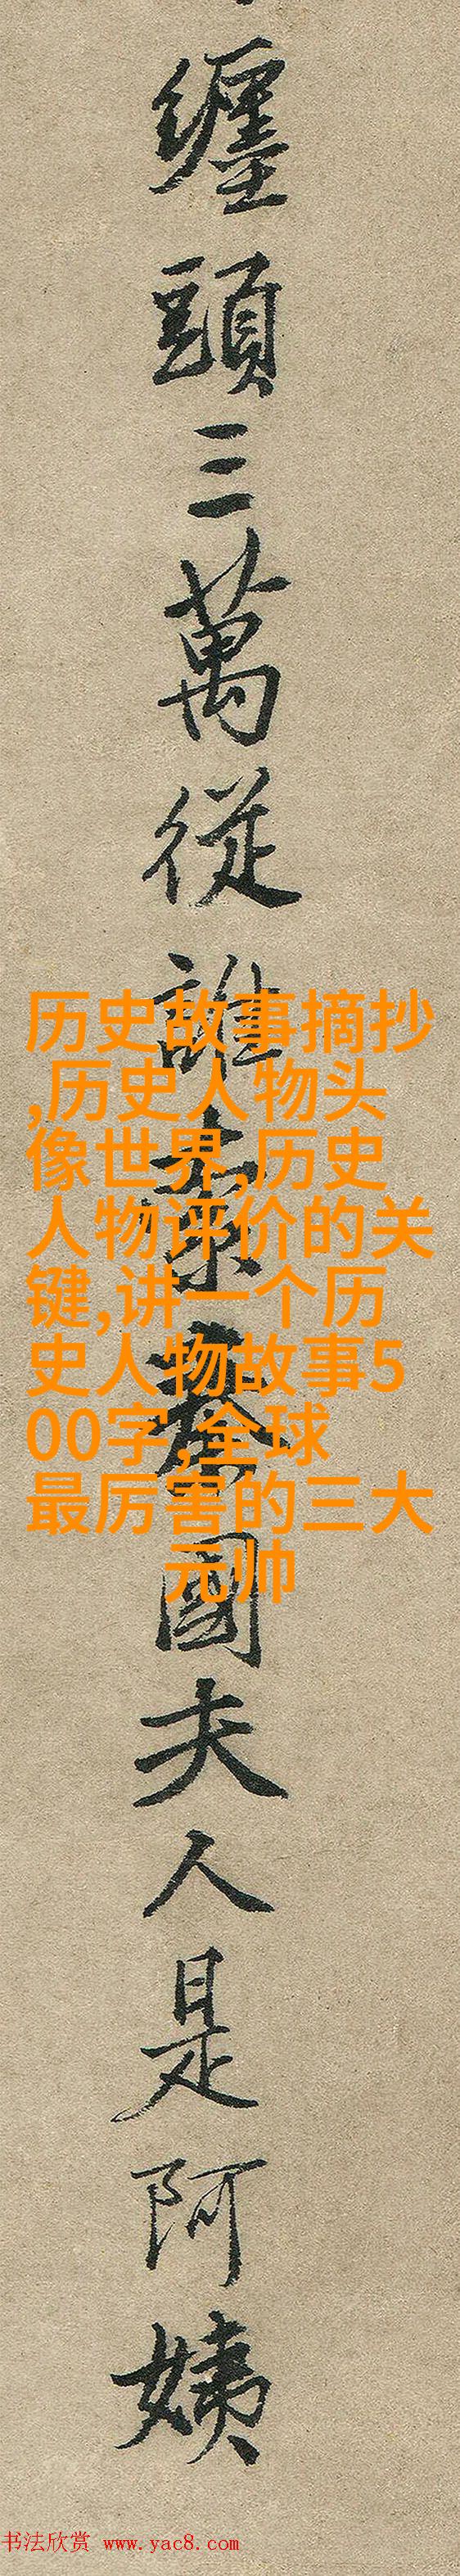 纏頭三萬從誰索秦國夫人是阿姨
历史故事摘抄
,历史人物头
像世界,历史
人物评价的关
键,讲一个历
史人物故事5
00字,全球
最厉害的三大
元帅
书法欣赏 www.yac8.com